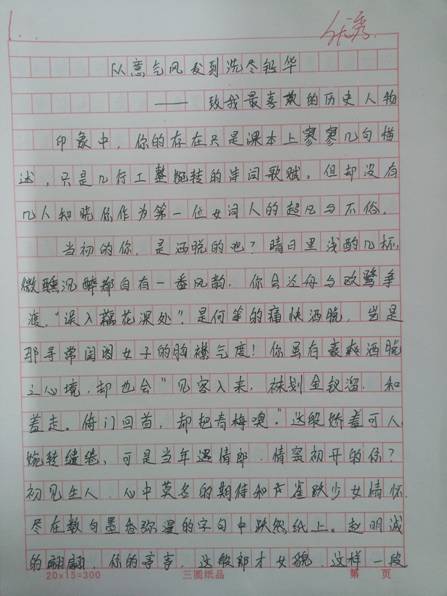 优秀
从意气风发到洗尽铅华
——致我最喜欢的历史人物
印象中，你的存在只是课本上寥寥几句描
述，只是几行工整婉转的诗词歌赋，但却没有
几人知晓你作为第一位女词人的超凡与不俗。
当初的你，是洒脱的吧？晴日里浅酌几杯，
微醺沉醉都自有一番风韵，你会泛舟与欧鹭争
渡，"误入藕花深处"，是何等的痛快洒脱，岂是
那寻常闺阁女子的胸襟气度！你虽有豪爽洒脱
之心境，却也会"见客入来，袜刬金钗溜，和
羞走。倚门回首，却把青梅嗅。"这般娇羞可人
婉转缠绵，可是当年遇情郎，情窦初开的你？
初见生人，心中莫名的期待和雀跃少女情怀
尽在数句墨香弥漫的字句中跃然纸上。赵明诚
的翩翩，你的亭亭，这般郎才女貌，这样一段
20×15=300 三圈纸品 第 页